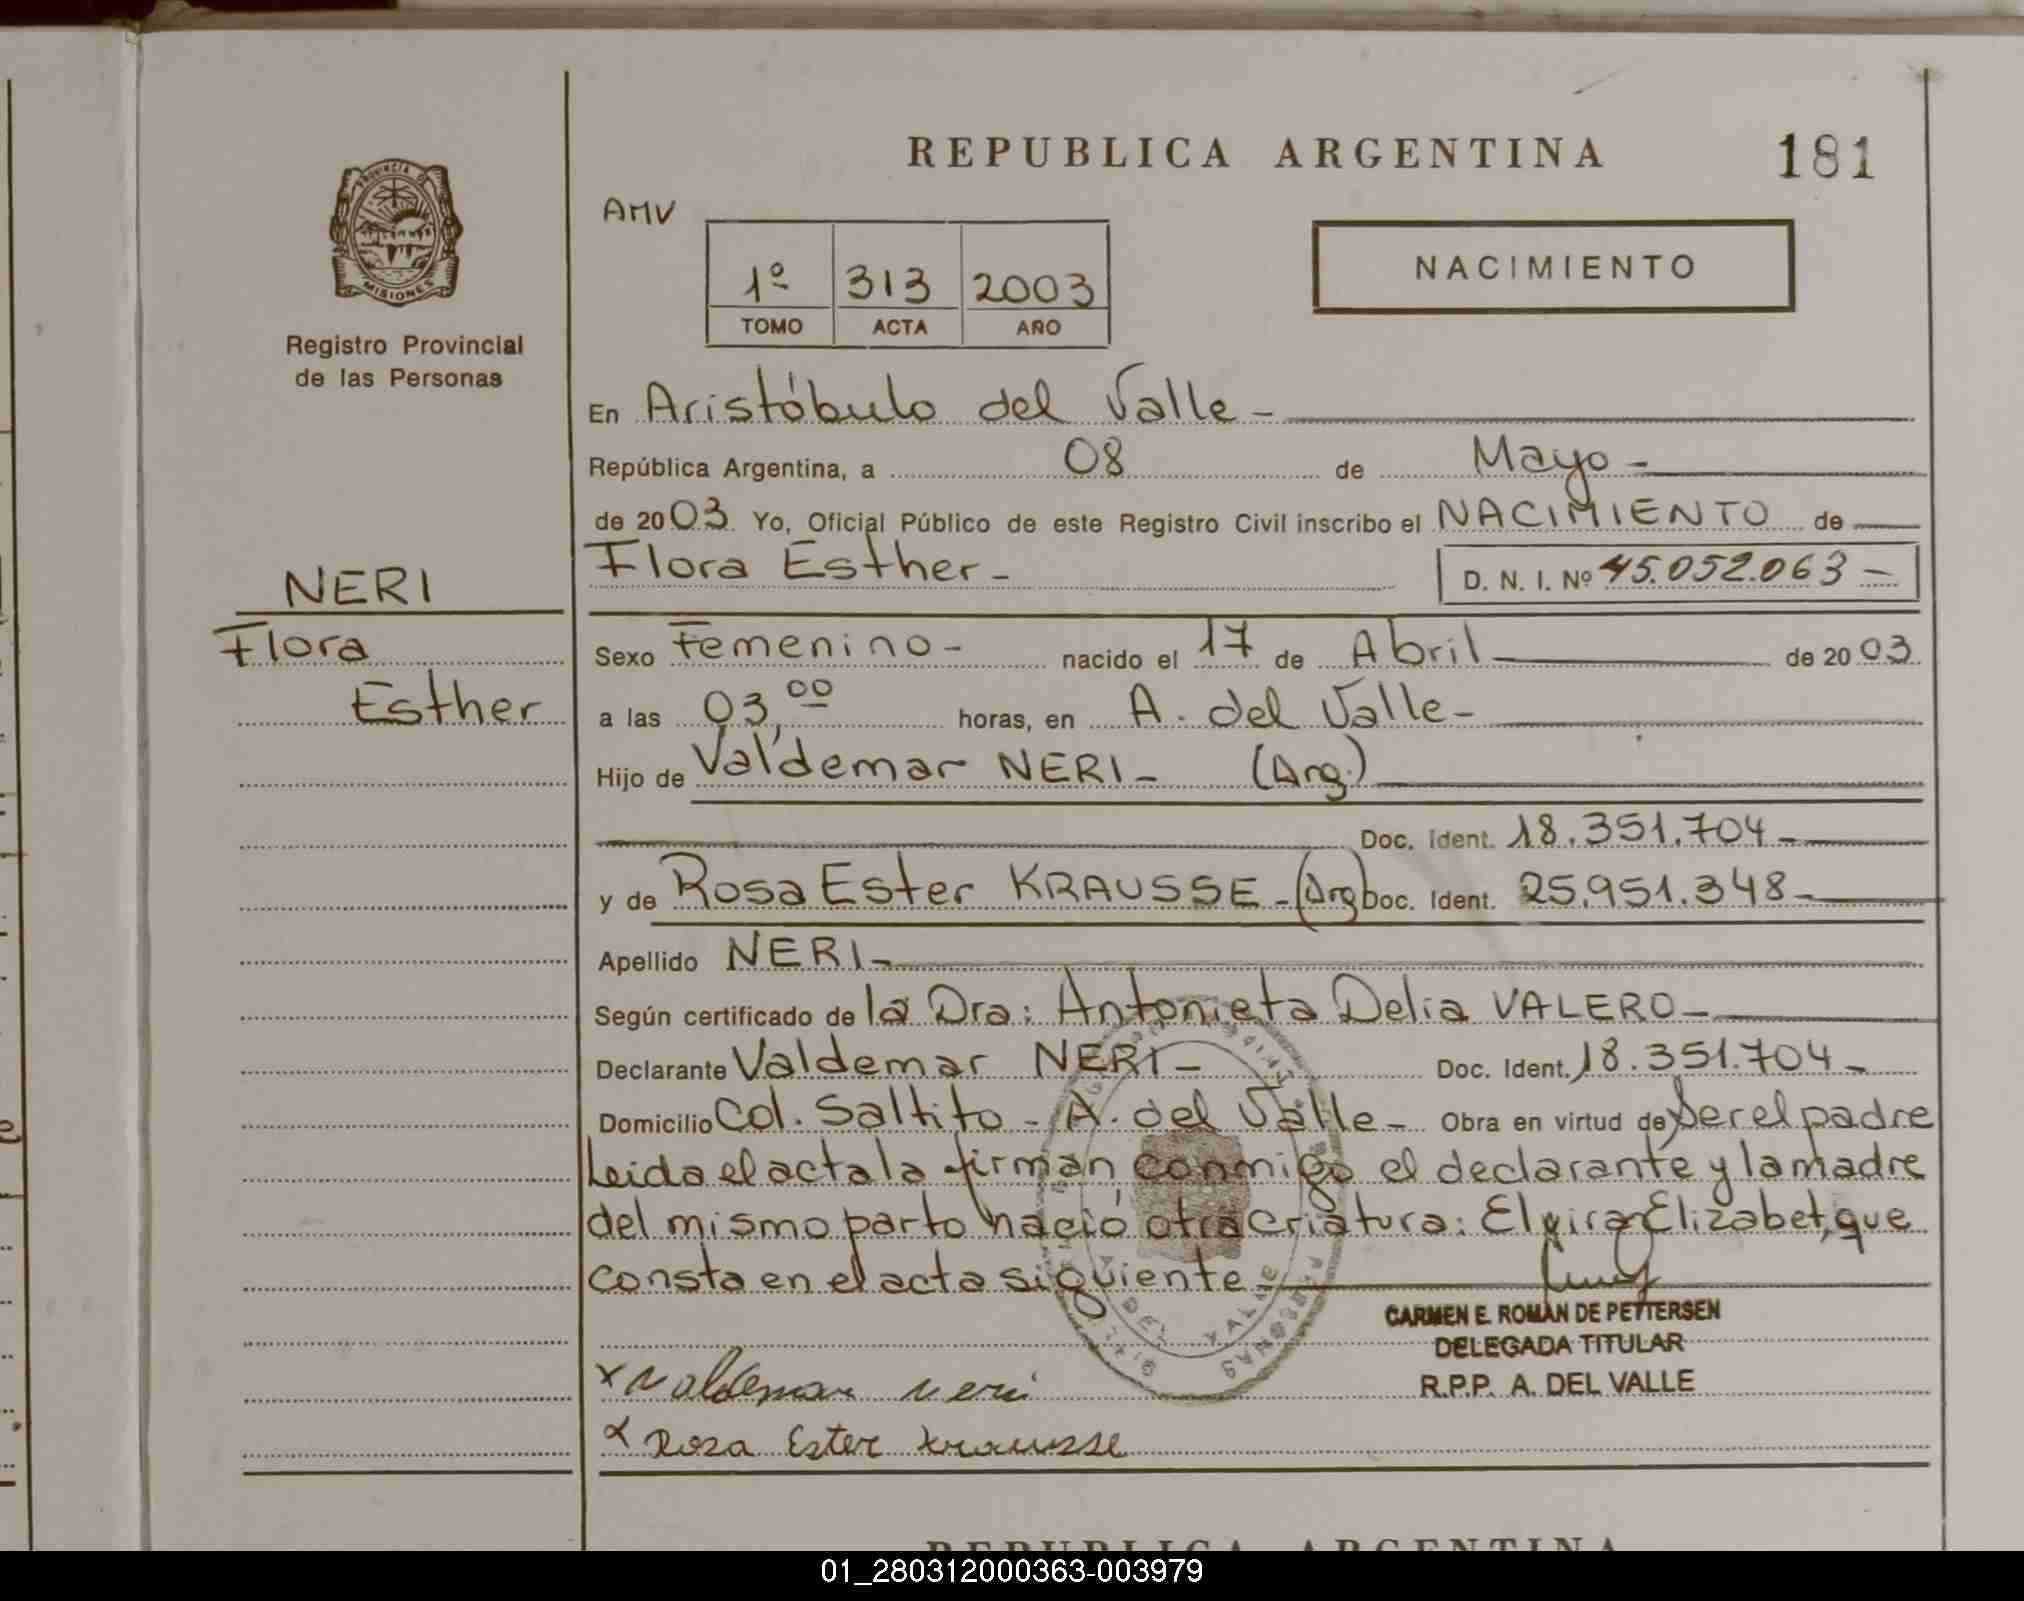 REPUBLICA ARGENTINA
181
AMV
1º 313 2003
TOMO ACTA AÑO
NACIMIENTO
PROVINCIA DE
MISIONES
Registro Provincial
de las Personas
NERI
Flora
Esther
En Aristóbulo del Valle -
República Argentina, a 08 de Mayo -
de 2003. Yo, Oficial Público de este Registro Civil inscribo el NACIMIENTO de
Flora Esther - D. N. I. Nº 45.052.063 -
Sexo Femenino - nacido el 17 de Abril de 2003
a las 03,00 horas, en A. del Valle -
Hijo de Valdemar NERI - (Arg.)
Doc. Ident. 18.351.704 -
y de Rosa Ester KRAUSSE - (Arg) Doc. Ident. 25.951.348 -
Apellido NERI -
Según certificado de la Dra: Antonieta Delia VALERO -
Declarante Valdemar NERI - Doc. Ident. 18.351.704 -
Domicilio Col. Saltito - A. del Valle - Obra en virtud de ser el padre
Leida el acta la firman conmigo el declarante y la madre
del mismo parto nació otra criatura: Elvira Elizabet, que
consta en el acta siguiente
CARMEN E. ROMAN DE PETTERSEN
DELEGADA TITULAR
R.P.P. A. DEL VALLE
x Valdemar neri
x Rosa Ester krausse
REPUBLICA ARGENTINA
01_280312000363-003979